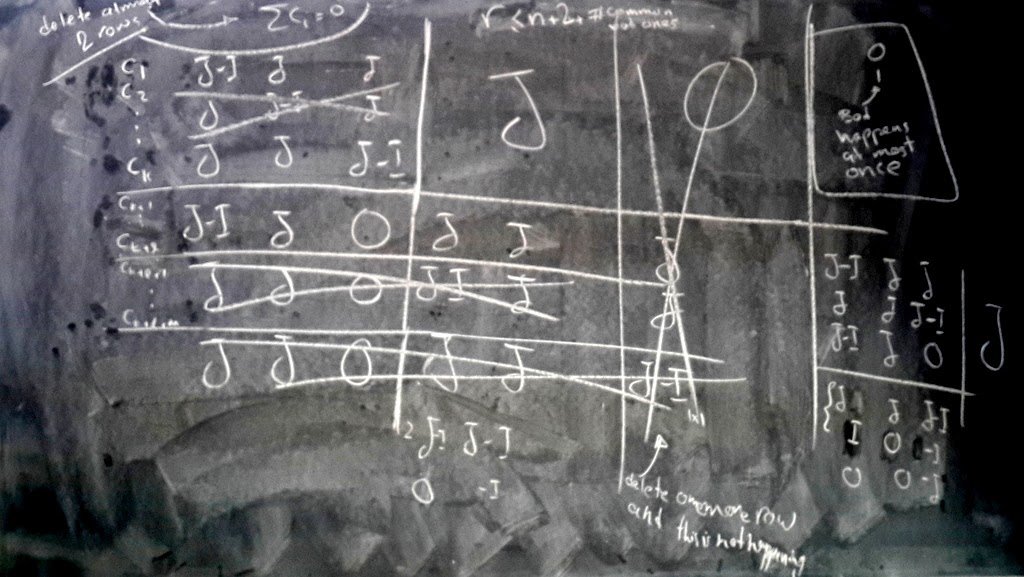 delete at most
2 rows
∑ C_i = 0
r ≤ n+2, # common
C_1 J-I J J
C_2 J J-I J
⋮
C_k J J J-I
J
0
1
Bad
happens
at most
once
C_k+1 J-I J O J J
⋮
J J O J-I J
⋮
J J O J J J-I
J-I J J
J J J-I
J-I J O
J
I O -I
O O -J
2 J-I J-I
O -I
1x1
delete one more row
and this is not happening